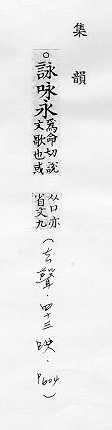 集韻
○詠咏永爲命切說文歌也或从口亦省文九
(去聲·四十三映·P604)